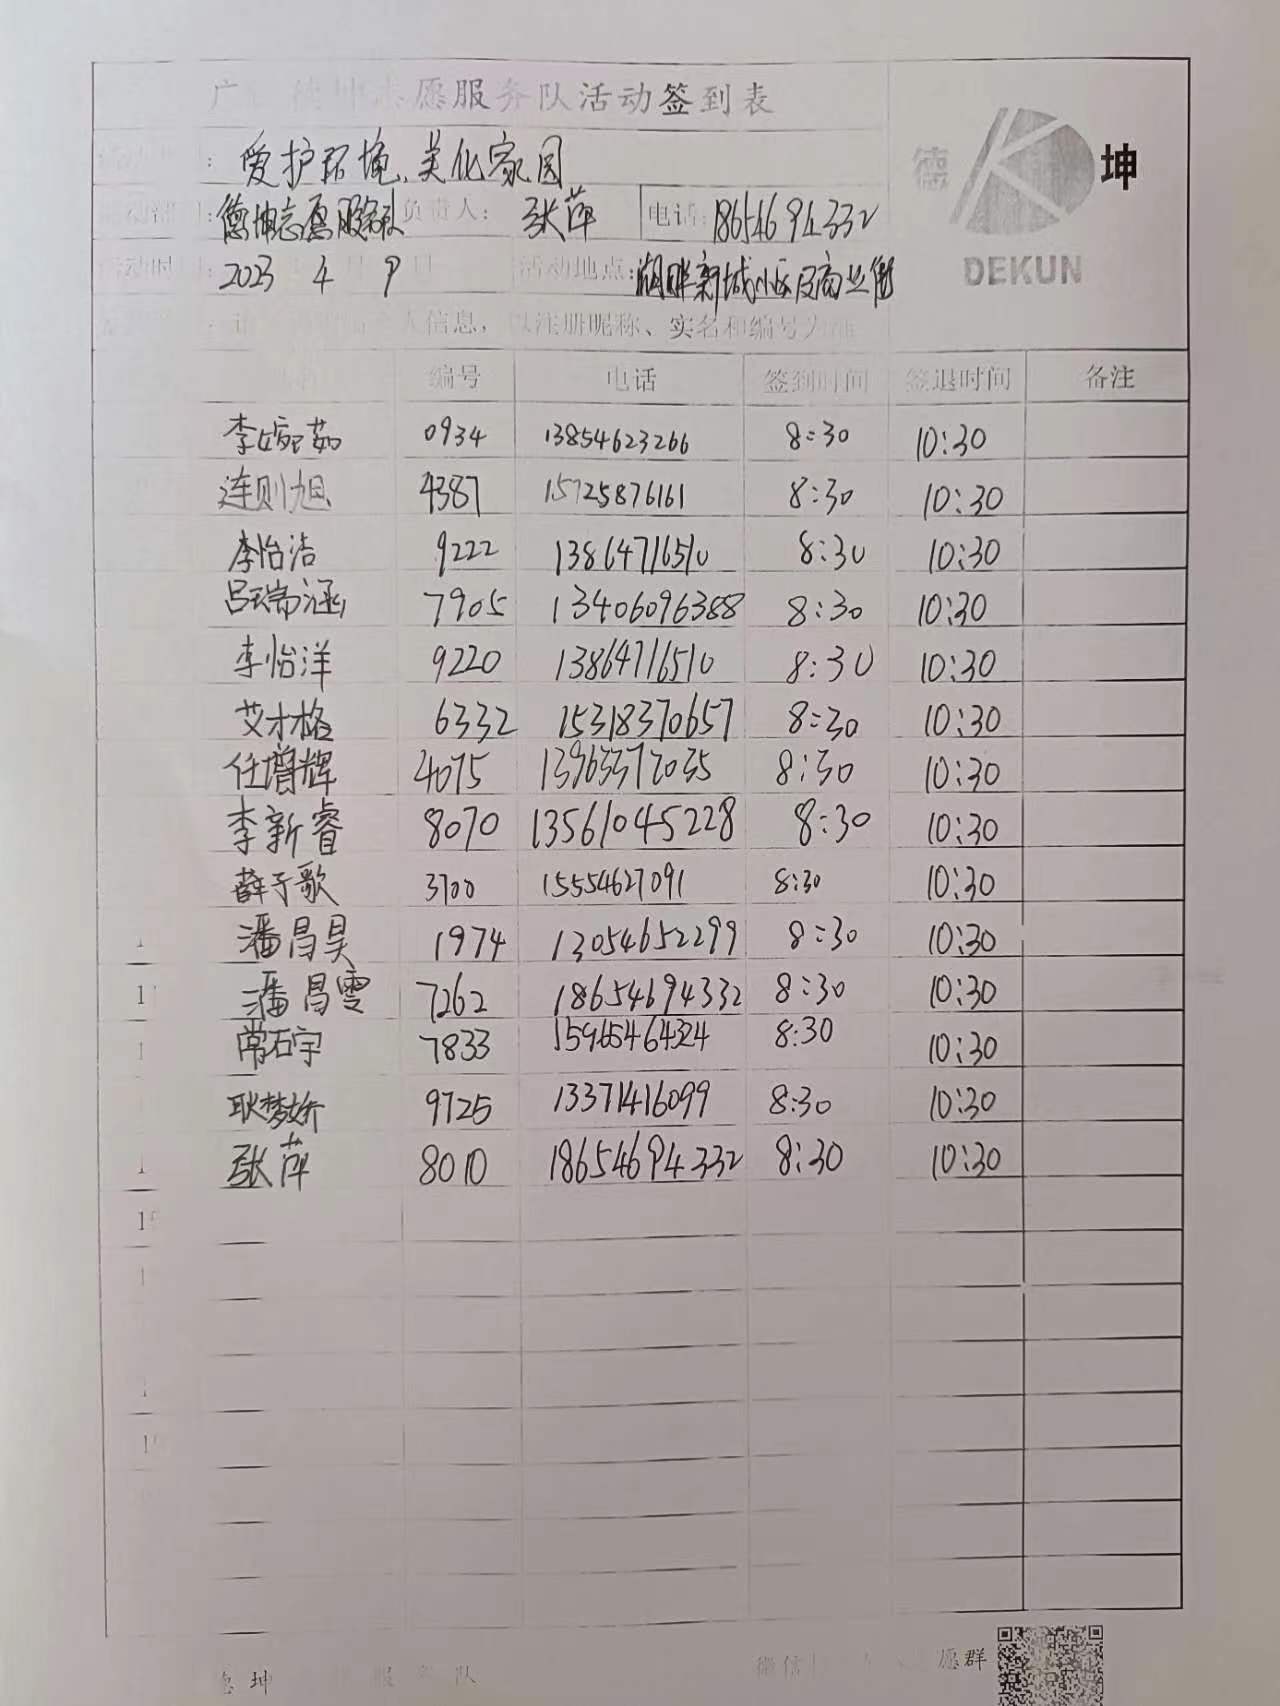 广 德坤志愿服务队活动签到表
德 坤
DEKUN
: 爱护环境、美化家园
德坤志愿服务队 负责人: 张萍 电话: 18654694332
活动时 : 2023 4 月 9 日 活动地点: 湖畔新城小区及商业街
人信息，以注册昵称、实名和编号为准
编号 电话 签到时间 签退时间 备注
李婉茹 0934 13854623266 8:30 10:30
连则旭 4387 15725876161 8:30 10:30
李怡洁 9222 13864716510 8:30 10:30
吕瑞涵 7905 13406096388 8:30 10:30
李怡洋 9220 13864716510 8:30 10:30
艾才格 6332 15318370657 8:30 10:30
任增辉 4075 13963372035 8:30 10:30
李新睿 8070 13561045228 8:30 10:30
薛子歌 3700 15554627091 8:30 10:30
潘昌昊 1974 13054652299 8:30 10:30
潘昌雯 7262 18654694332 8:30 10:30
常石宇 7833 15965464324 8:30 10:30
耿梦娇 9725 13371416099 8:30 10:30
张萍 8010 18654694332 8:30 10:30
德 坤 服 务 队 微信 愿群